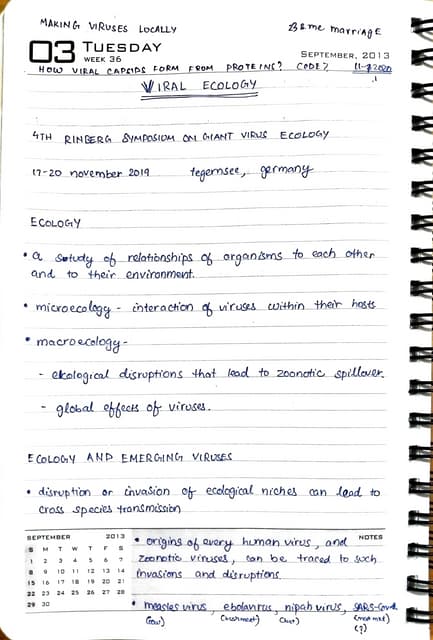 MAKING VIRUSES LOCALLY
marriage
03 TUESDAY
WEEK 36
SEPTEMBER, 2013
HOW VIRAL CAPSIDS FORM FROM PROTEINS? CODE?
VIRAL ECOLOGY
4TH RINBERG SYMPOSIUM ON GIANT VIRUS ECOLOGY
17-20 november 2019 tegernsee, germany
ECOLOGY
• a study of relationships of organisms to each other
and to their environment.
• microecology - interaction of viruses within their hosts
• macroecology -
- ekological disruptions that lead to zoonotic spillover.
- global effects of viruses.
ECOLOGY AND EMERGING VIRUSES
• disruption or invasion of ecological niches can lead to
cross species transmission
SEPTEMBER 2013
S M T W T F S
1 2 3 4 5 6 7
8 9 10 11 12 13 14
15 16 17 18 19 20 21
22 23 24 25 26 27 28
29 30
NOTES
• origins of every human virus, and
zoonotic viruses, can be traced to such
invasions and disruptions.
• measles virus, ebolavirus, nipah virus, SARS-CoV2
(cow) (bushmeat) (bat)
(?)